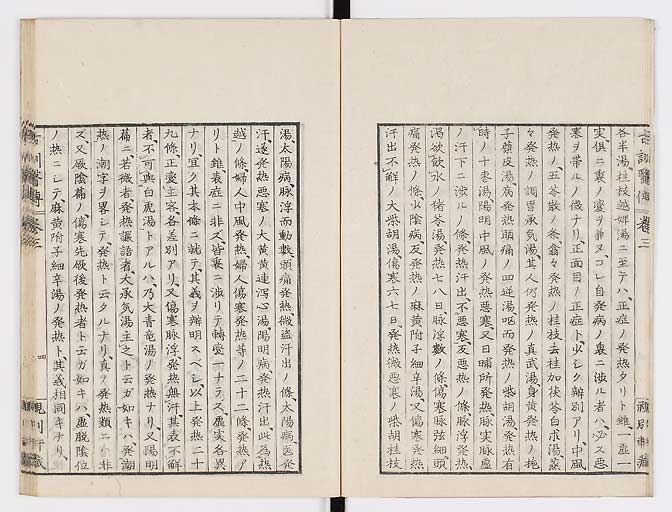 各半湯桂枝越婢湯ニ至テハ、正症ノ発熱タリト雖、一虚一
実俱ニ裏ノ変ヲ兼ヌ、コレ自発病ノ裏ニ渉ル者ハ、必ズ悪
寒ヲ帯ルノ微ナリ、正面目ノ正症ト、少シク辨別アリ、中風
発熱ノ、五苓散ノ条、翕々発熱ノ、桂枝去桂加茯苓白朮湯、蒸
々発熱ノ、調胃承気湯、其人仍発熱ノ、真武湯、身黄発熱ノ、梔
子蘗皮湯、病発熱頭痛ノ、四逆湯、嘔而発熱ノ、柴胡湯、発熱有
時ノ、十棗湯、陽明中風ノ、発熱悪寒、又日晡所発熱、脉実脉虚
ノ、汗下ニ渉ルノ条、発熱汗出、不悪寒、反悪熱ノ条、脉浮発熱
渇欲飲水ノ、猪苓湯、発熱七八日、脉浮数ノ条、傷寒脉弦細、頭
痛発熱ノ条、少陰病、反発熱ノ、麻黄附子細辛湯、又傷寒発熱、
汗出不解ノ、大柴胡湯、傷寒六七日、発熱微悪寒ノ、柴胡桂枝
湯、太陽病、脉浮而動数、頭痛発熱、微盗汗出ノ条、太陽病、医発
汗、遂発熱悪寒ノ、大黄黄連瀉心湯、陽明病、発熱汗出、此為熱
越ノ条、婦人中風発熱、婦人傷寒発熱等ノ二十二條、発熱ア
リト雖、表症ニ非ズ、皆裏ニ渉リテ、転変一ナラズ、虚実各異
ナリ、宜ク其本條ニ就テ、其義ヲ辨明スベシ、以上発熱二十
九條、正変主客、各差別アリ、又傷寒脉浮、発熱無汗、其表不解
者、不可與白虎湯トアルハ、乃大青竜湯ノ発熱ナリ、又陽明
篇ニ、若微者、発熱讝語者、大承気湯主之ト云ガ如キハ、発潮
熱ノ潮字ヲ畧シテ、発熱ト云タルナリ、真ノ発熱類ニハ非
ズ、又厥陰篇ノ、傷寒先厥後発熱者ト云ガ如キハ、虚脱陰位
ノ熱ニシテ、麻黄附子細辛湯ノ発熱ト、其義相同キナリ、
巻三
四